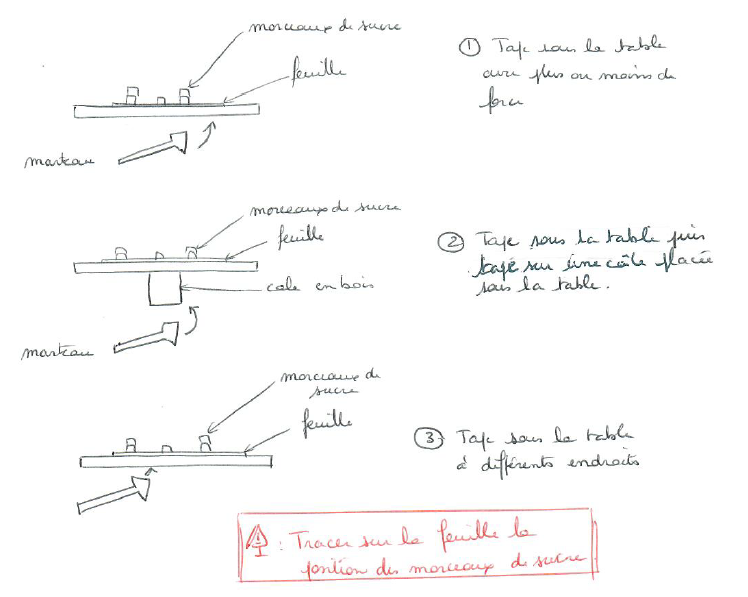 morceaux de sucre
feuille
marteau
① Tape sous la table
avec plus ou moins de
force
morceaux de sucre
feuille
cale en bois
marteau
② Tape sous la table puis
tape sur une cale placée
sous la table.
morceaux de
sucre
feuille
③ Tape sous la table
à différents endroits
: Tracer sur la feuille la
position des morceaux de sucre